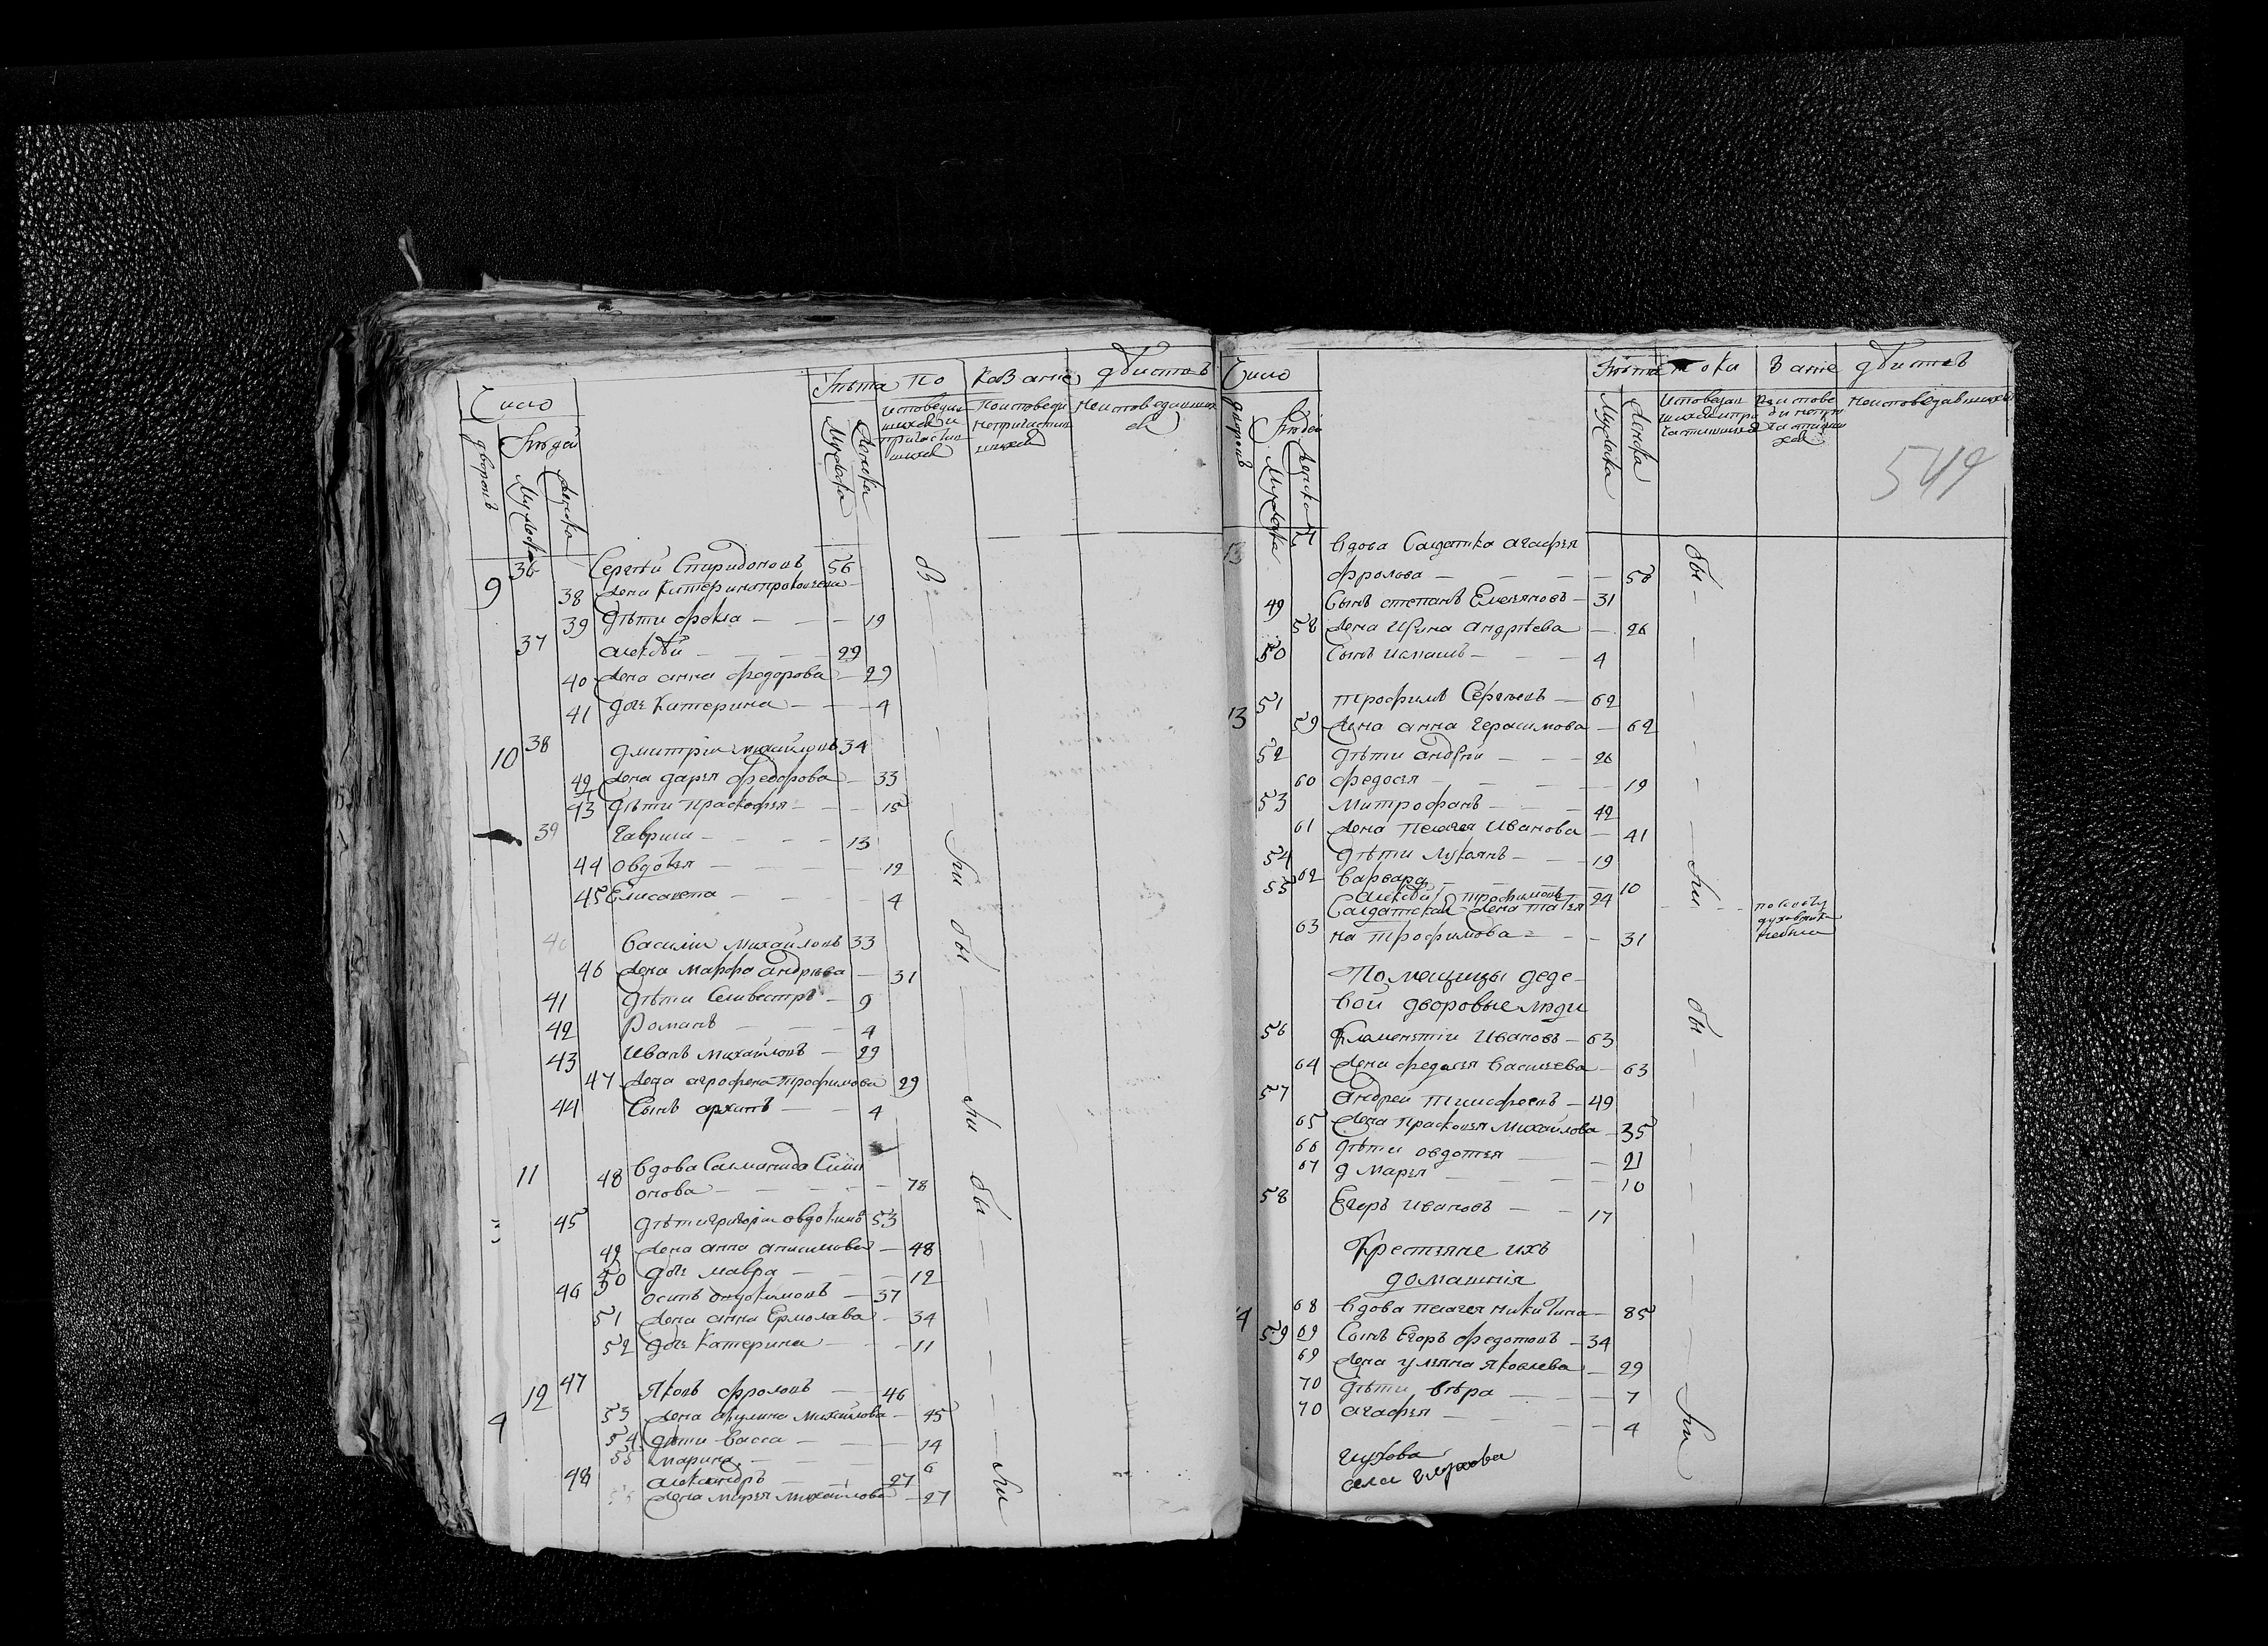 Число
Людей
дворовъ
Мужеска
Женска
Лѣта
Мужеска
Женска
По
казаніе
дѣйствъ
исповедав
шихся и
причастив
шихся
Поисповеди
непричастив
шихся
Неисповедавших
ся
9 36 Сергѣй Спиридоновъ 56
38 Жена Катерина прокофьева
39 Дѣти фекла — — 19
37 алексѣй — — — 29
40 Жена анна федорова — 29
41 дочь Катерина — — 4
10 38 дмитрій михайловъ 34
42 Жена дарья федорова — 33
43 Дѣти прасковья — — 15
39 Гаврила — — — 13
44 овдотья — — — 12
45 Елисавета — — — 4
40 Василій Михайловъ 33
46 Жена марфа андрѣева — 31
41 Дѣти Селивестръ — 9
42 Романъ — — — 4
43 Иванъ Михайловъ — 29
47 Жена агрофена трофимова 29
44 Сынъ архипъ — — 4
11 48 Вдова Саламанида Сими
онова — — — — 78
45 Дѣти григорій овдокимовъ 53
49 Жена анна анисимова — 48
50 дочь мавра — — — 12
46 осипъ овдокимовъ — 37
51 Жена анна Ермолаева — 34
52 дочь Катерина — — 11
12 47 Яковъ фроловъ — 46
4 53 Жена акулина Михайлова — 45
54 Дѣти Васса — — — 14
55 марина — — — 6
48 александръ — — 27
56 Жена марья михайлова — 27
бы
ли
бы
ли
бы
ли
Число
Людей
дворовъ
Мужеска
Женска
Лѣта
Мужеска
Женска
пока
заніе
дѣйствъ
Исповедав
шихся и при
частившихся
Поиспове
ди непри
частивши
хся
Неисповедавшихся
549
57 Вдова Салдатка агафья
фролова — — — — 58
49 Сынъ степанъ Емельяновъ — 31
58 Жена Ирина андрѣева — 26
50 Сынъ — — 4
13 51 трофимъ Сергѣевъ — 62
59 Жена анна герасимова — 62
52 Дѣти андрѣй — — — 26
60 федосья — — — — 19
53 Митрофанъ — — — 42
61 Жена пелагея Иванова — 41
54 Дѣти Лукьянъ — — 19
62 варвара — — — 10
55 алексѣй трофимовъ 24
Салдатская Жена татья
63 на трофимова — — 31
Помещицы деде-
вой дворовые люди
56 Клементій Ивановъ — 63
64 Жена федосья Васильева — 63
57 андрей тимофеевъ — 49
65 Жена прасковья Михайлова — 35
66 Дѣти овдотья — — 21
67 д марья — — — 10
58 Егоръ Ивановъ — — 17
Крестьяне ихъ
домашнія
14 68 Вдова пелагея никитина — 85
59 69 Сынъ Егоръ федотовъ — 34
69 Жена ульяна яковлева — 29
70 Дѣти вѣра — — — 7
70 агафья — — — — 4
глухова
села глухова
бы
ли
по совѣту
духовника
небыла
бы
ли